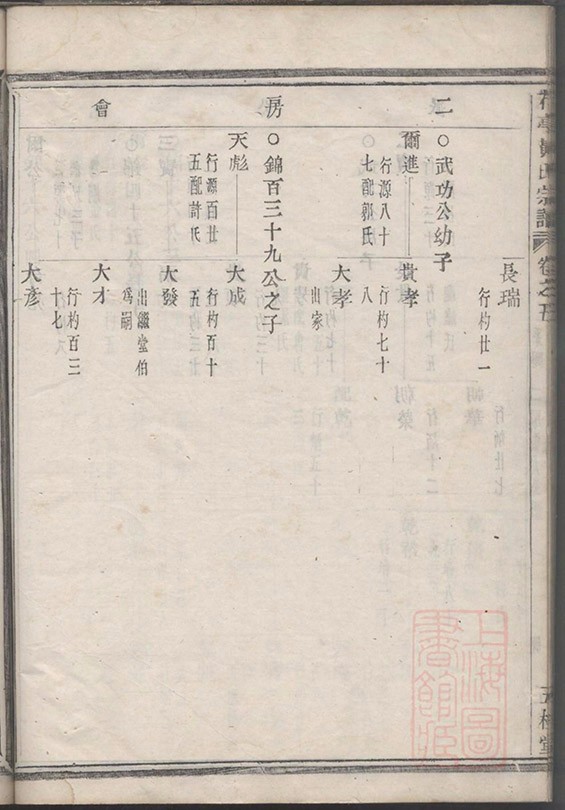 宗譜
卷之五
五桂堂
二房會
長瑞
行杓廿一
○武功公幼子
爾進
行源八十
七配郭氏
貴孝
行杓七十
八
大孝
出家
○錦百三十九公之子
天彪
行源百廿
五配許氏
大成
行杓百十
五
大發
出繼堂伯
爲嗣
大才
行杓百三
十七
大彥
上海圖
書館藏